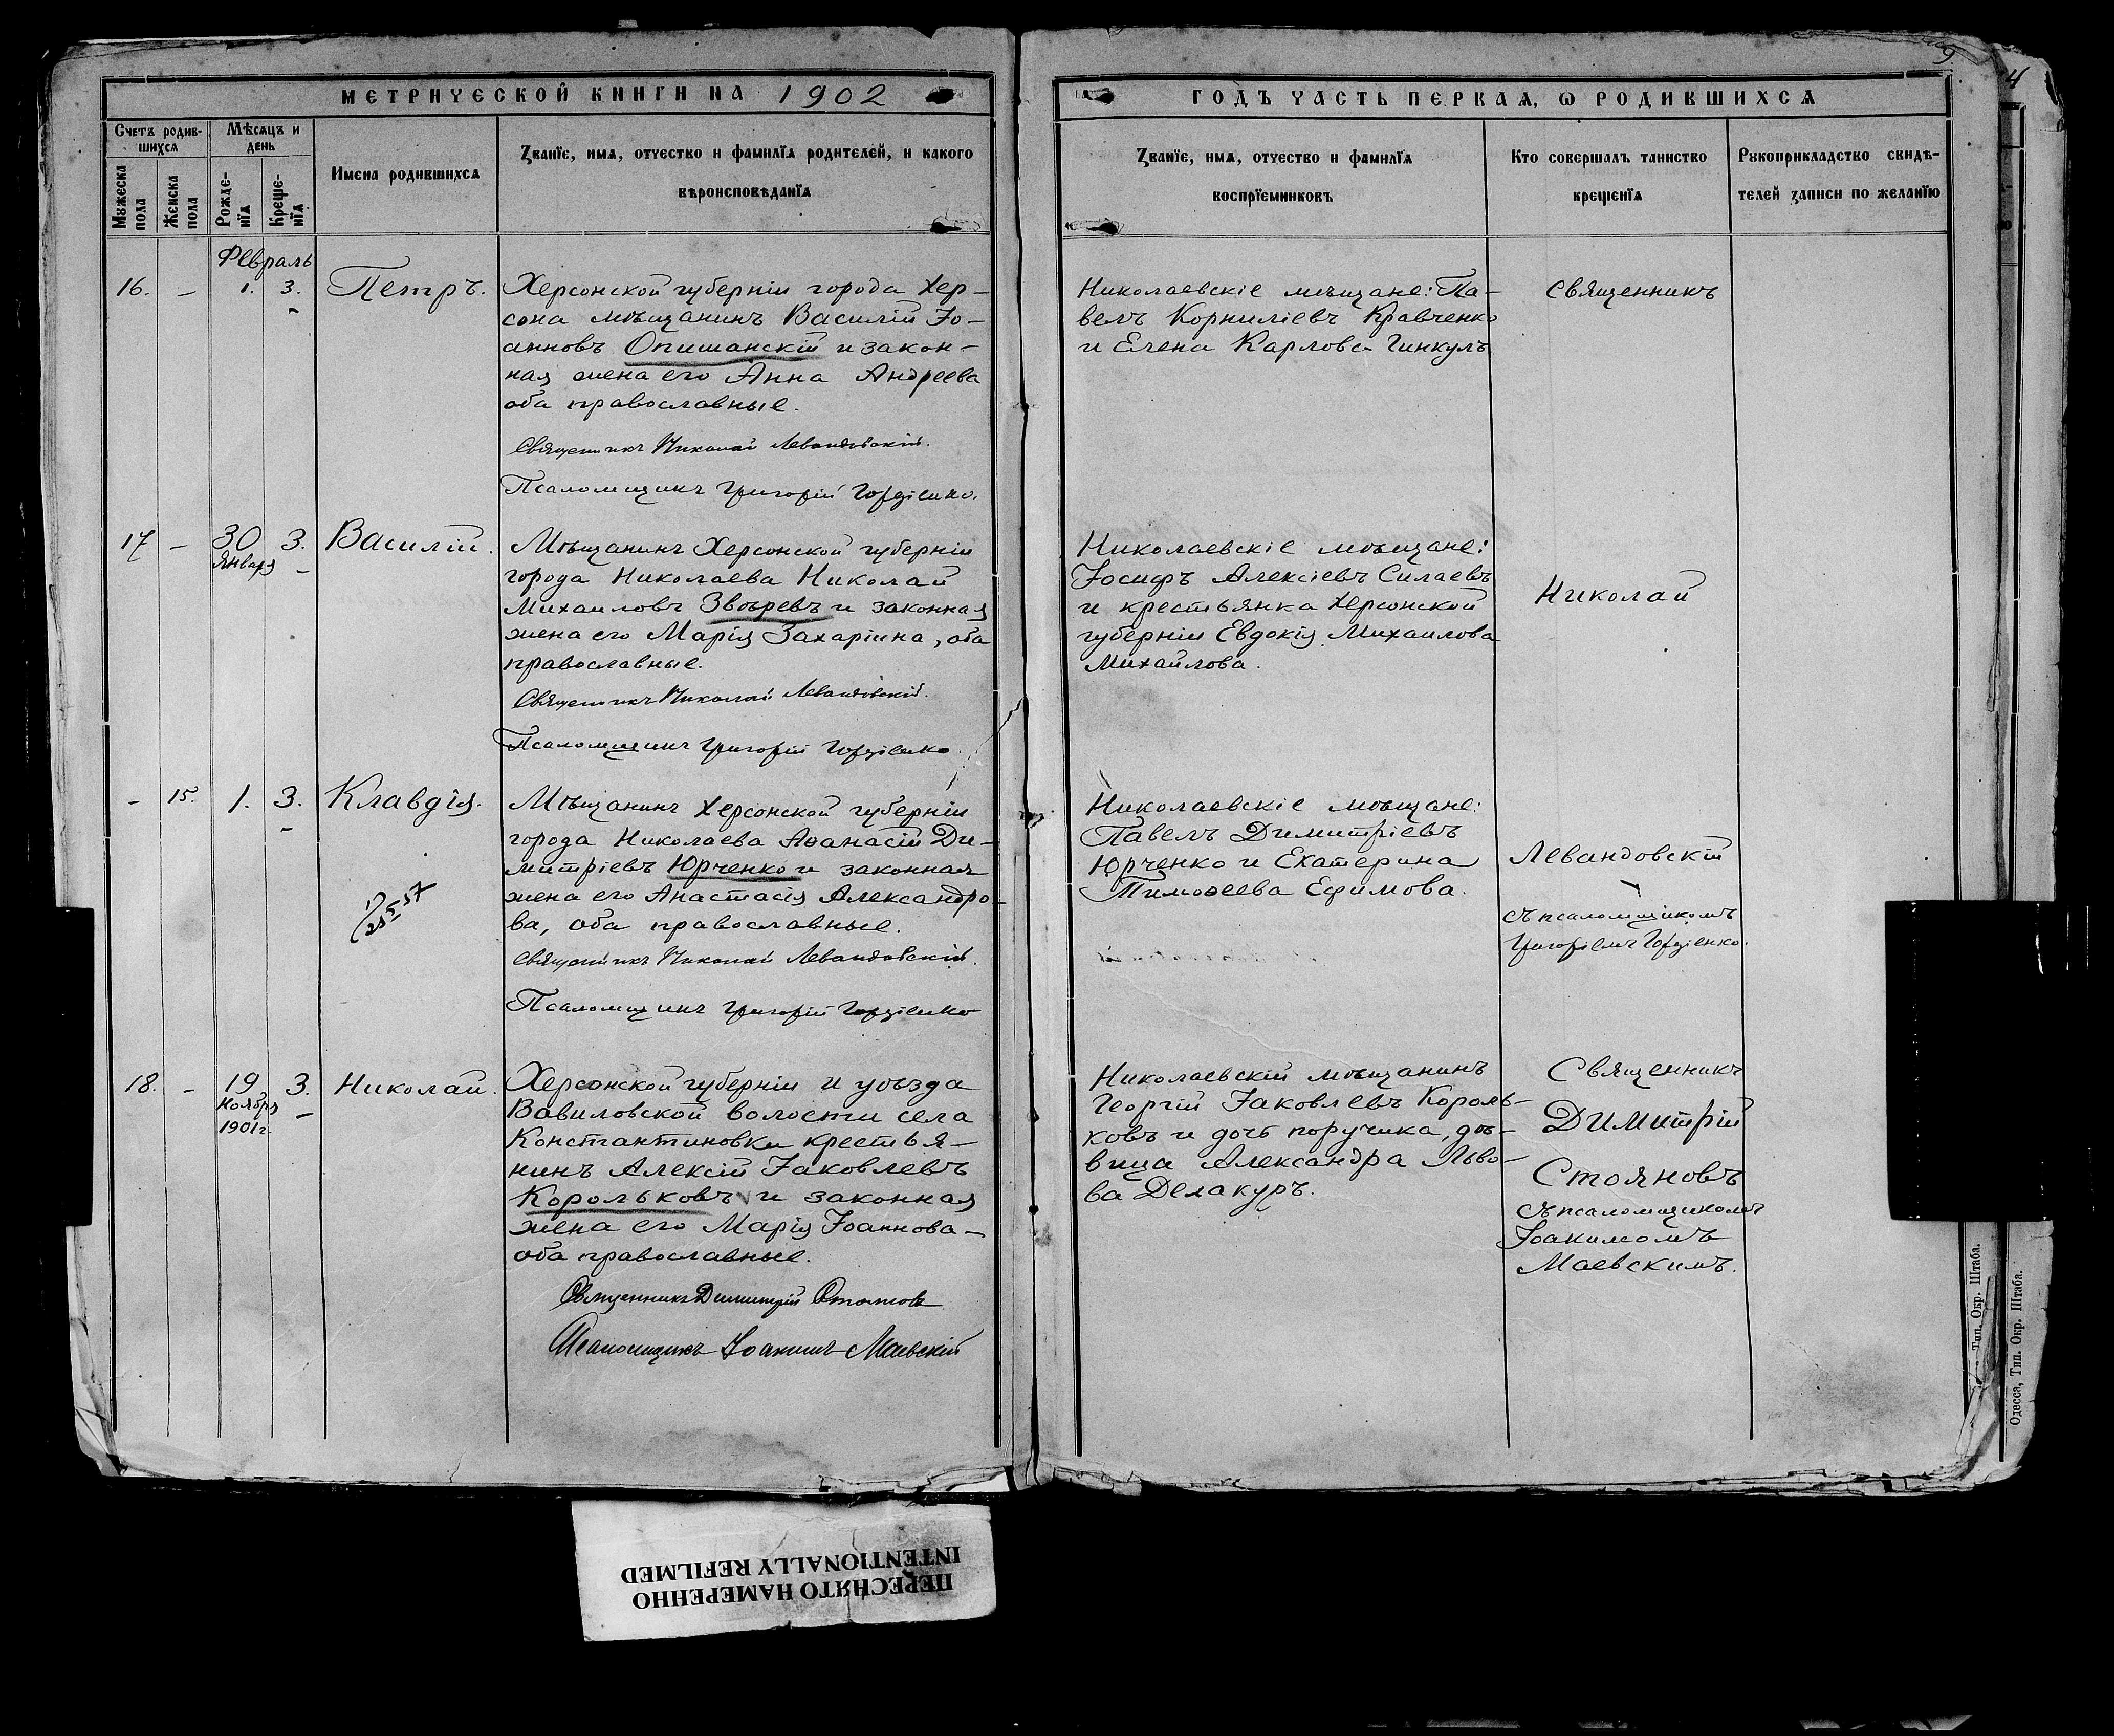 МЕТРИЧЕСКОЙ КНИГИ НА 1902
Счетъ родив-
шихся
Мѣсяцъ и
день
Мужеска
пола
Женска
пола
Рожде-
нїя
Креще-
нїя
Имена родившихся
Званїе, имя, отчество и фамилїя родителей, и какого
вѣроисповѣданїя
Февраль
16. – 1. 3. Петръ.
Херсонской губерніи города Хер-
сона мѣщанинъ Василій Іо-
анновъ Опишанскій и закон-
ная жена его Анна Андреева
оба православные.
Священникъ Николай Левандовскій.
Псаломщикъ Григорій Гордіенко.
17 – 30 Января 3. Василій.
Мѣщанинъ Херсонской губерніи
города Николаева Николай
Михаиловъ Звѣревъ и законная
жена его Марія Захаріина, оба
православные.
Священникъ Николай Левандовскій.
Псаломщикъ Григорій Гордіенко.
– 15. 1. 3. Клавдія.
Мѣщанинъ Херсонской губерніи
города Николаева Аѳанасій Ди-
митріевъ Юрченко и законная
жена его Анастасія Александро-
ва, оба православные.
Священникъ Николай Левандовскій.
Псаломщикъ Григорій Гордіенко
18. – 19 Ноября 1901 г. 3. Николай.
Херсонской губерніи и уѣзда
Вавиловской волости села
Константиновки крестья-
нинъ Алексій Іаковлевъ
Корольковъ и законная
жена его Марія Іоаннова –
оба православные.
Священникъ Димитрій Стояновъ
Псаломщикъ Іоакимъ Маевскій
9
4
ГОДЪ ЧАСТЬ ПЕРВАЯ, Ѡ РОДИВШИХСЯ
Званїе, имя, отчество и фамилїя
воспрїемниковъ
Кто совершалъ таинство
крещенїя
Рукоприкладство свидѣ-
телей записи по желанїю
Николаевскіе мѣщане: Па-
велъ Корниліевъ Кравченко
и Елена Карлова Гинкулъ
Священникъ
Николаевскіе мѣщане:
Іосифъ Алексіевъ Силаевъ
и крестьянка Херсонской
губерніи Евдокія Михаилова
Михайлова.
Николай
Николаевскіе мѣщане:
Павелъ Димитріевъ
Юрченко и Екатерина
Тимоѳеева Ефимова.
Левандовскій
съ псаломщикомъ
Григоріемъ Гордіенко.
Николаевскій мѣщанинъ
Георгій Іаковлевъ Король-
ковъ и дочь поручика, дѣ-
вица Александра Льво-
ва Делакуръ.
Священникъ
Димитрій
Стояновъ
съ псаломщикомъ
Іоакимомъ
Маевскимъ.
Тип. Окр. Штаба.
Одесса, Тип. Окр. Штаба.
ПЕРЕСНЯТО НАМЕРЕННО
INTENTIONALLY REFILMED